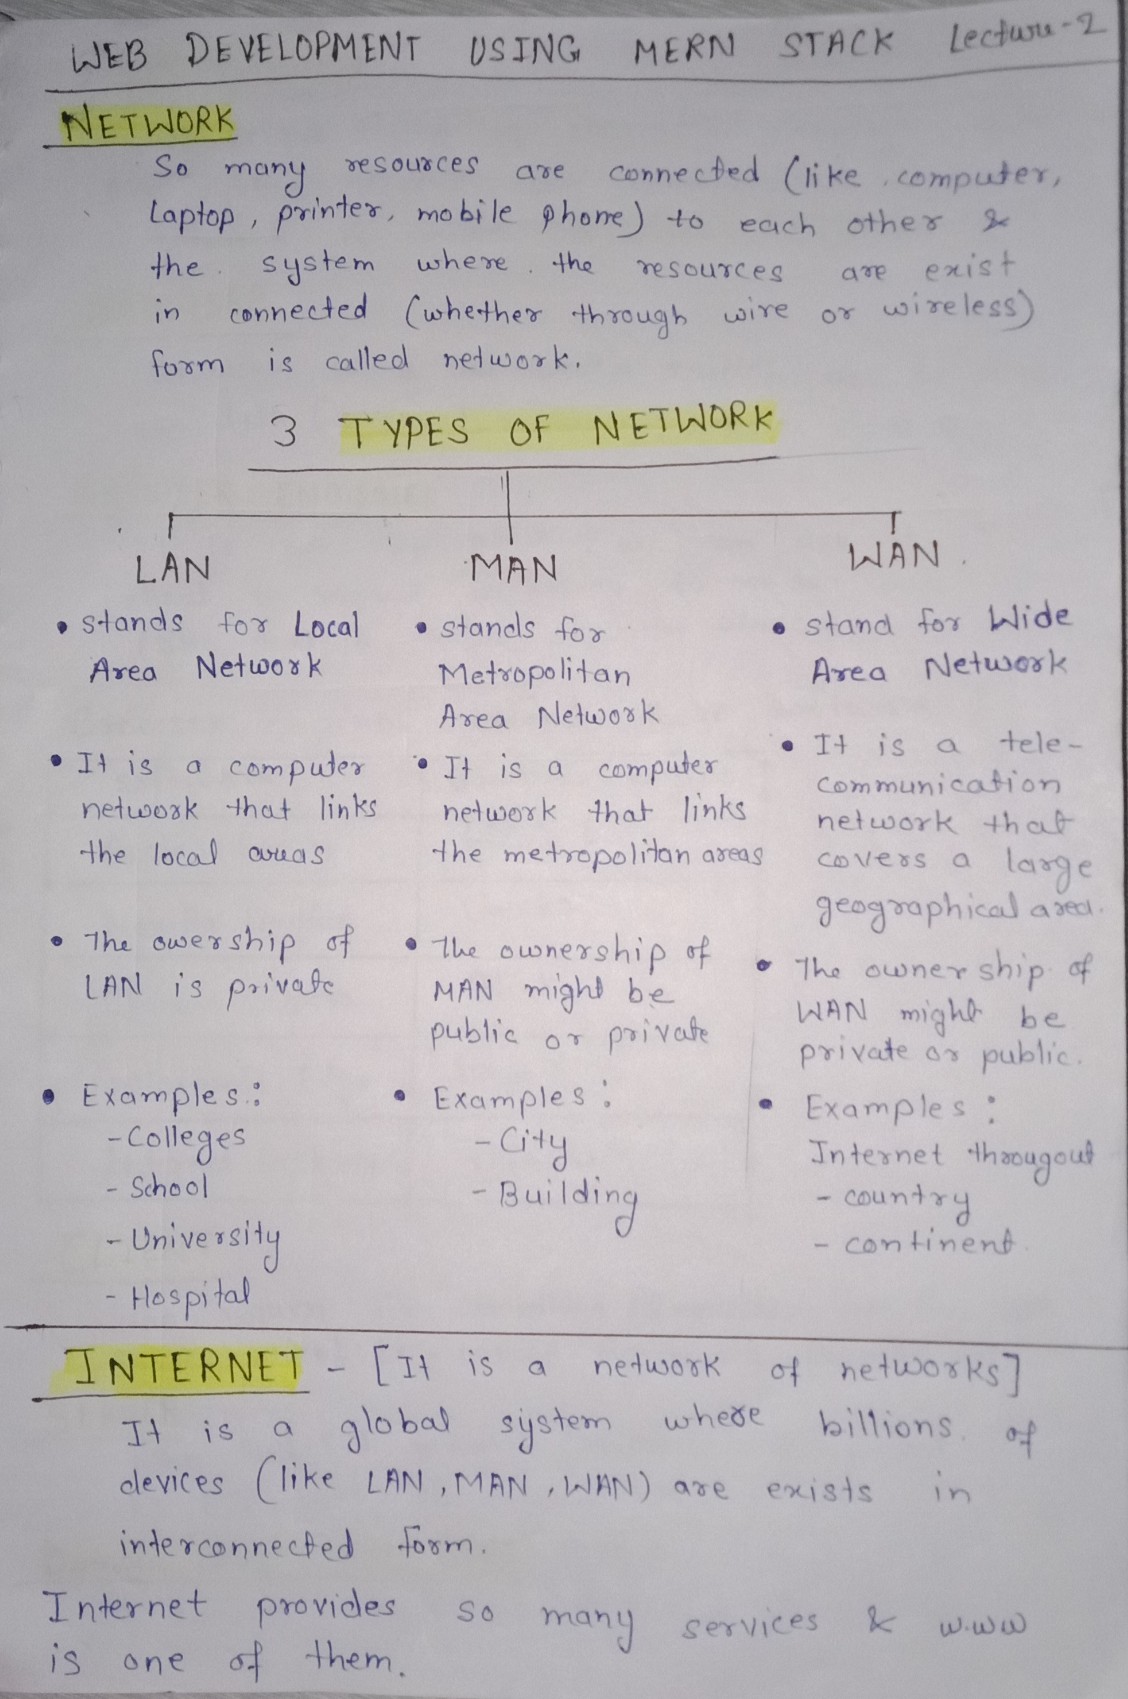 WEB DEVELOPMENT USING MERN STACK Lecture-2
NETWORK
So many resources are connected (like computer,
Laptop, printer, mobile phone) to each other &
the system where the resources are exist
in connected (whether through wire or wireless)
form is called network.
3 TYPES OF NETWORK
LAN
• stands for Local
Area Network
• It is a computer
network that links
the local areas
• The owership of
LAN is private
• Examples:
- Colleges
- School
- University
- Hospital
MAN
• stands for
Metropolitan
Area Network
• It is a computer
network that links
the metropolitan areas
• The ownership of
MAN might be
public or private
• Examples:
- City
- Building
WAN
• stand for Wide
Area Network
• It is a tele-
communication
network that
covers a large
geographical area.
• The ownership of
WAN might be
private or public.
• Examples:
Internet througout
- country
- continent
INTERNET - [It is a network of networks]
It is a global system where billions of
devices (like LAN, MAN, WAN) are exists in
interconnected form.
Internet provides so many services & w.w.w
is one of them.